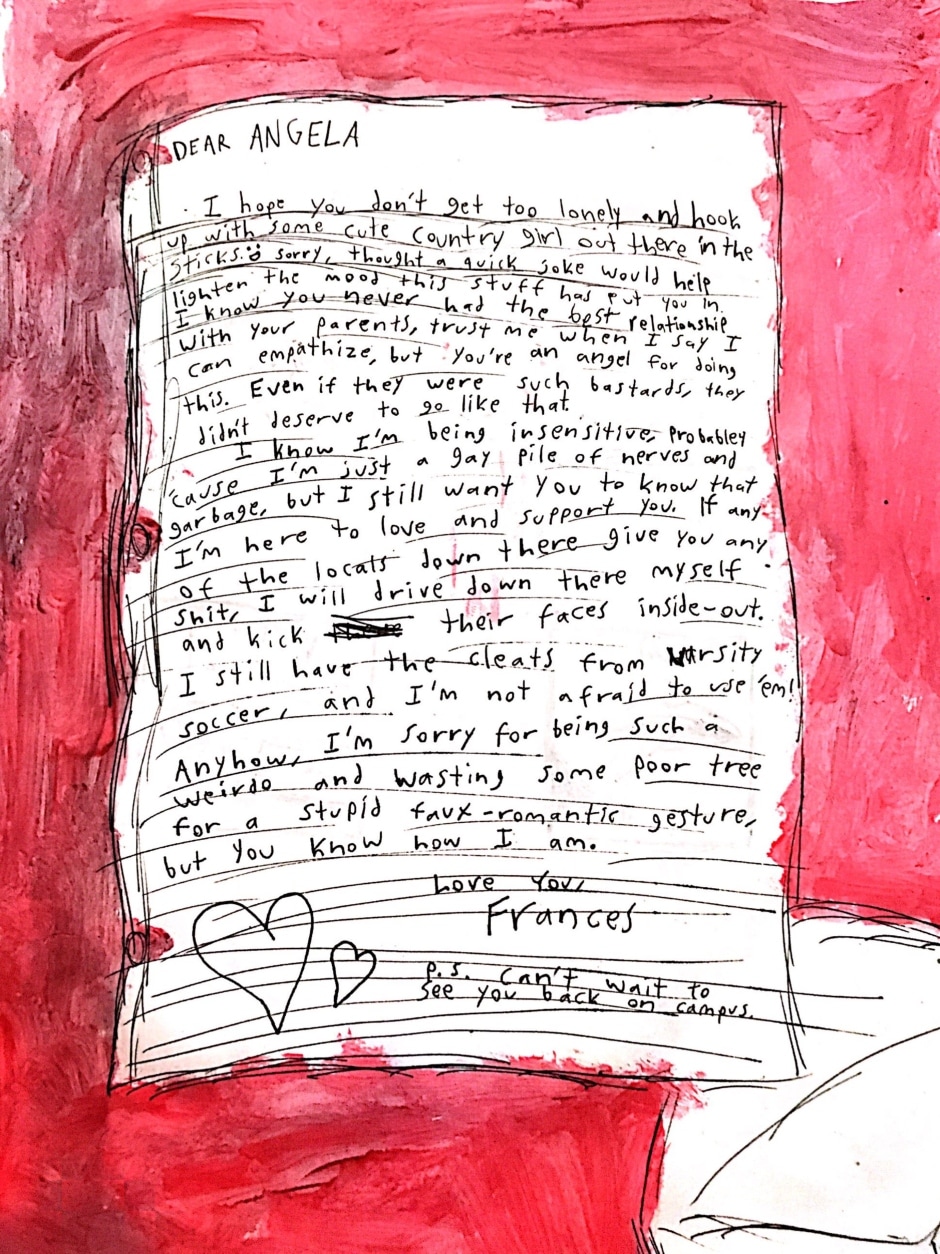 DEAR ANGELA
I hope you don't get too lonely and hook
up with some cute country girl out there in the
sticks. Sorry, thought a quick joke would help
lighten the mood this stuff has put you in.
I know you never had the best relationship
with your parents, trust me when I say I
can empathize, but you're an angel for doing
this. Even if they were such bastards, they
didn't deserve to go like that.
I know I'm being insensitive, probabley
'cause I'm just a gay pile of nerves and
garbage, but I still want you to know that
I'm here to love and support you. If any
of the locals down there give you any
shit, I will drive down there myself
and kick their faces inside-out.
I still have the cleats from varsity
soccer, and I'm not afraid to use 'em!
Anyhow, I'm sorry for being such a
weirdo and wasting some poor tree
for a stupid faux-romantic gesture,
but you know how I am.
Love You,
Frances
P.S. Can't wait to
see you back on campus.